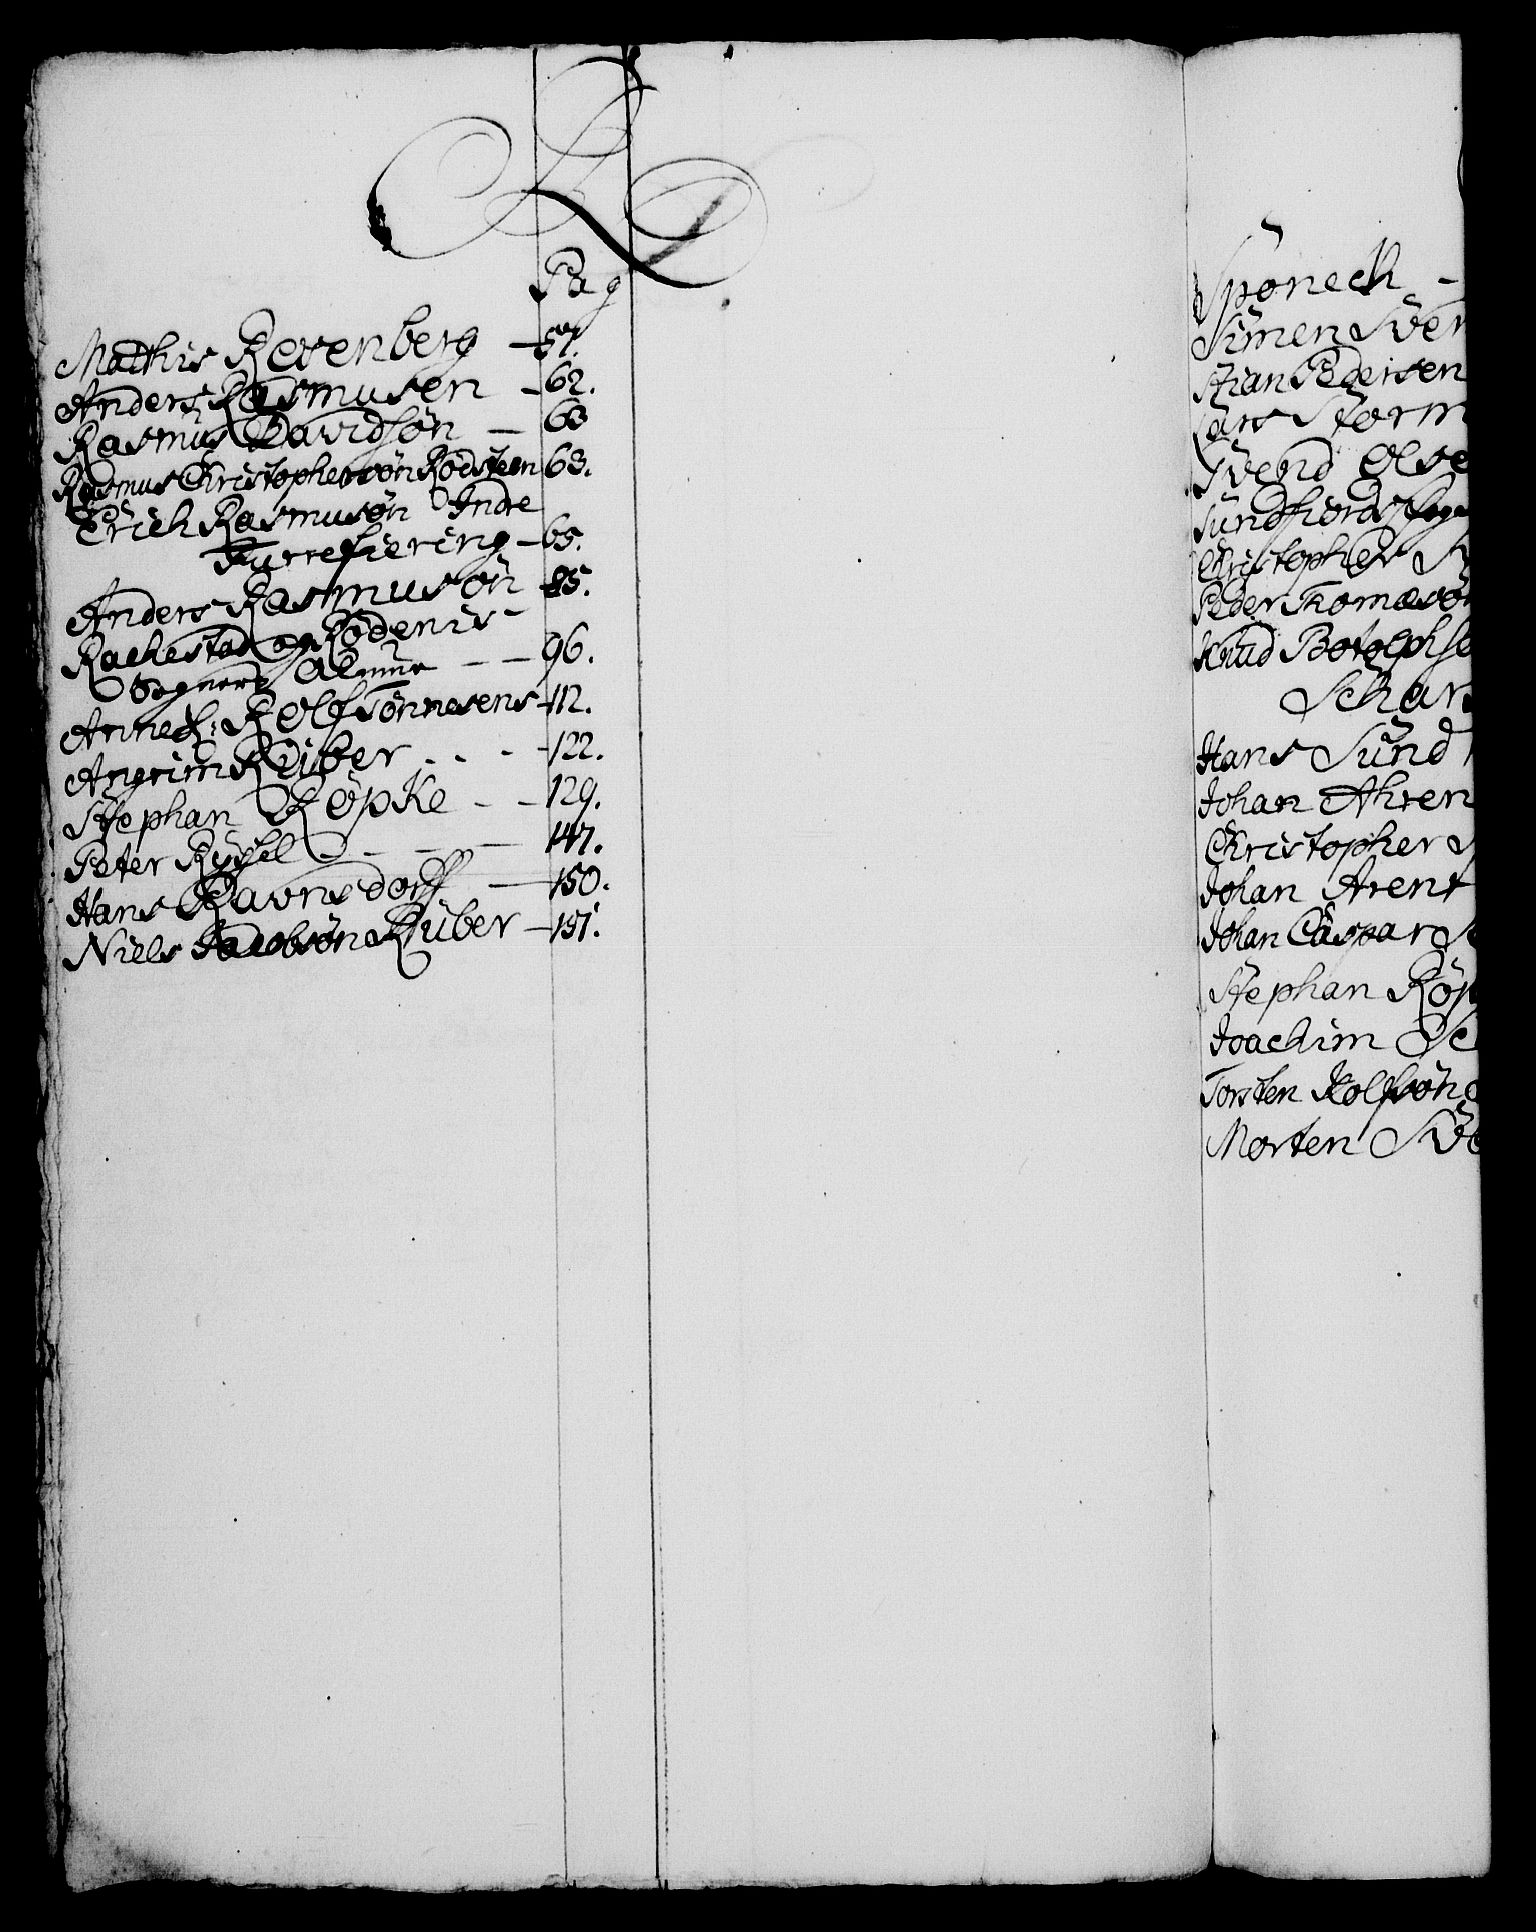 R
Pag
Mathis Revenberg – 57.
Anders Rasmusen – 62.
Rasmus Davidsøn – 63
Rasmus Christophersøn Rodsteen 63.
Erich Rasmusøn Indre
Furrefiering – 65.
Anders Rasmusøn – 85.
Rachestad og Rödenis
Sogners Almue – – 96.
Anne Rolf Tönnesens – 112.
Angrim Rüber . . – 122.
Stephan Röpke – – 129.
Peter – – – 147.
Hans Ravnsdorff – 150.
Niels Jacobsøn Rüber – 151.
Sponeck –
Simen Sven
Stian Pedersen
Lars Storm
Svend Olse
Sundfiords
Christopher
Peder Thomæsön
Knud Botolphse
Schar
Hans Sünd
Johan Ahren
Christopher
Johan Arent
Johan Caspar
Stephan Röp
Joachim Sc
Torsten Rolfsön
Morten Sve